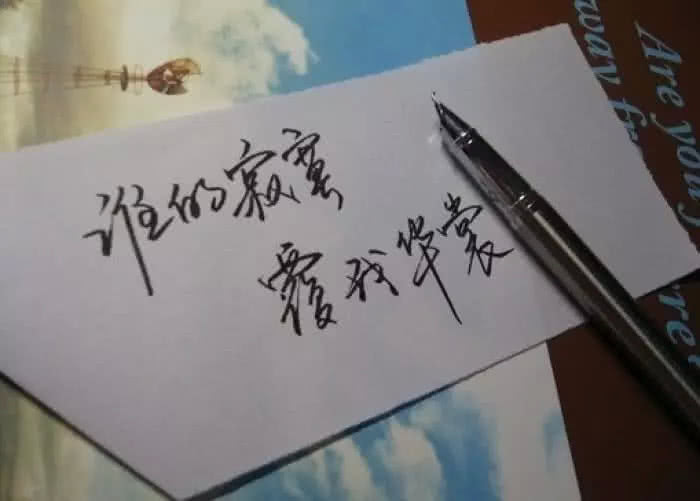 谁的寂寞
覆我华裳
Are you
way fr